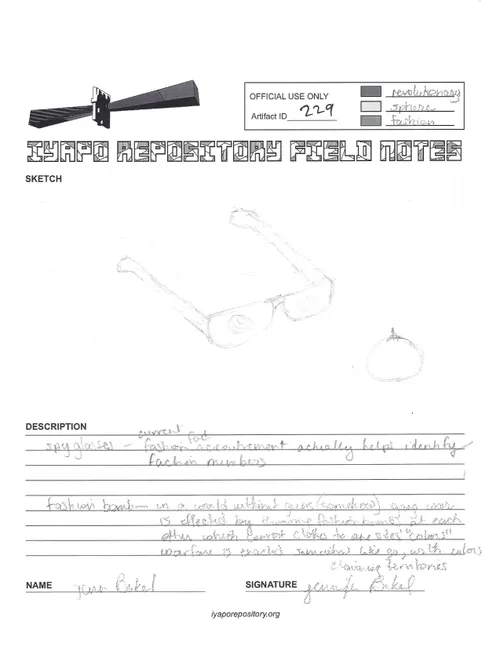 OFFICIAL USE ONLY
Artifact ID 229
revolutionary
sphere
fashion
IYAPO REPOSITORY FIELD NOTES
SKETCH
DESCRIPTION
current
spy glasses – fashion accoutrement actually helps identify
faction members
fashion bomb – in a world without guns (somehow) gang war
is effected by throwing fashion bombs at each
other which convert clothes to one sides' "colors"
warfare is enacted somewhat like go, with colors
claiming territories
NAME
SIGNATURE
iyaporepository.org